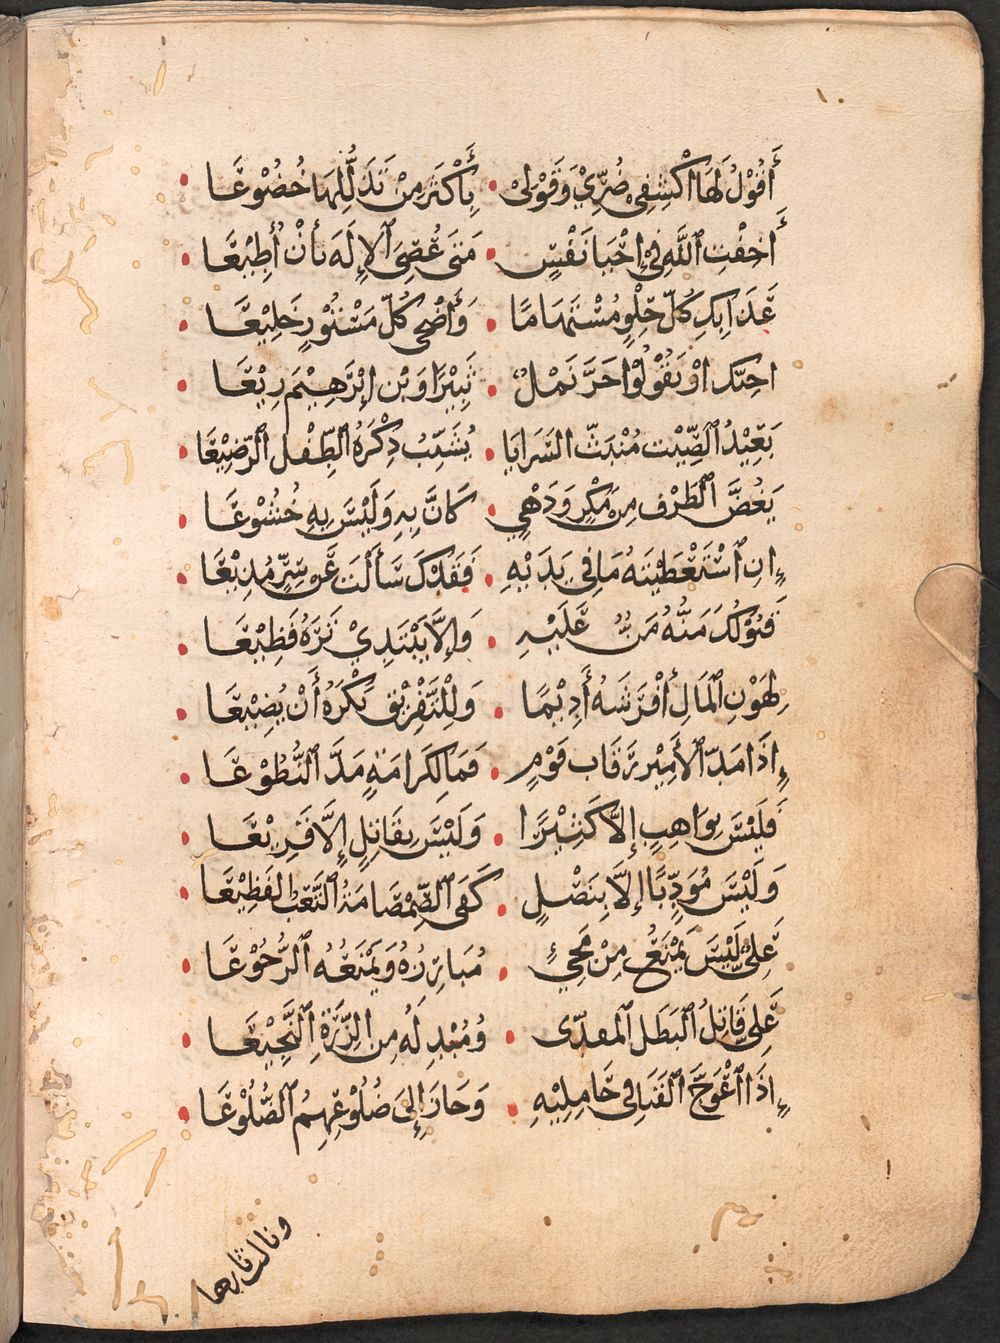 أَقُوْلُ لَهَا اكْشِفِي ضُرِّيْ وَقَوْلِيْ • بِأَكْثَرَ مِنْ تَدَلُّلِهَا خُضُوْعَا •
أَخِفْتِ اللَّهَ فِي إِحْيَا نَفْسٍ • مَتَى عُصِيَ الْإِلَهُ بأنْ أُطِيْعَا •
غَدَا بِكِ كُلُّ خِلْوٍ مُسْتَهَامًا • وَأَضْحَى كُلُّ مَسْتُوْرٍ خَلِيْعَا •
احبّك اوْ يَقُوْلُوْا جَرَّ نَمْلٌ • ثَبِيْرًا وَبْن إبْرَهِيْمَ رِيْعَا •
بَعِيْدُ الصِّيْت مُنْبَثّ السَّرَايَا • يُشَيِّبُ ذِكْرُهُ الطِّفْلَ الرَّضِيْعَا •
يَغُضُّ الطَّرْف مِن مَكْرٍ وَدَهْيٍ • كَانَّ بِهِ وَلَيْسَ بِهِ خُشُوْعَا •
إنِ اسْتَعْطَيْتَهُ مَا فِي يَدَيْهِ • فَقَدْكَ سَأَلْتَ عَنْ سِرٍّ مُذِيْعَا •
قَبُوْلُكَ مَنَّهُ مَنٌّ عَلَيْهِ • وَإِلَّا يَبْتَدِيْ يَرَهُ فَظِيْعَا •
لِهَوْنِ الْمَالِ أَفْرَشَهُ أَدِيْمًا • وَلِلتَّفْرِيْق يَكْرَهُ أَنْ يُضِيْعَا •
إِذَا مَدّ الْأَمِيْر رِقَاب قَوْمٍ • فَمَا لِكَرَامَةٍ مَدَّ النُّطُوْعَا •
فَلَيْسَ بِوَاهِبٍ إِلَّا كَثِيْرًا • وَلَيْسَ بِقَاتِلٍ إِلَّا قَرِيْعَا •
وَلَيْسَ مُؤَدِّبًا إِلَّا بِنَصْلٍ • كَفَى الصِّمْصَامَةُ التَّعَب الفَظِيْعَا •
عَلِيٌّ لَيْسَ يَمْنَعُ مِنْ مَجِيْءٍ • مُبَارِزَهُ وَيَمْنَعُهُ الرُّجُوْعَا •
عَلِي قَاتِلُ الْبَطَل الْمفدّى • وَمُبْدِلُهُ مِن الزَّرَدِ النَّجِيْعَا •
إِذَا اعْوَجَّ الْقَنَا فِي حَامِلِيْهِ • وَجَازَ إِلَى ضُلُوْعِهِمُ الضُّلُوْعَا •
ونالت ثارها